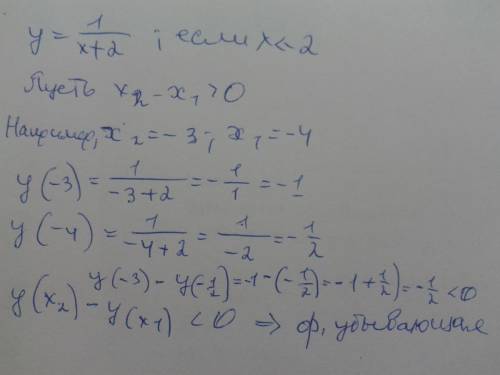 y = 1/(x+2) ; если x<-2
Пусть x₂ - x₁ > 0
Например, x₂ = -3; x₁ = -4
y(-3) = 1/(-3+2) = -1/1 = -1
y(-4) = 1/(-4+2) = 1/(-2) = -1/2
y(-3) - y(-1/2) = -1 - (-1/2) = -1 + 1/2) = -1/2 < 0
y(x₂) - y(x₁) < 0 ⇒ ф, убывающая